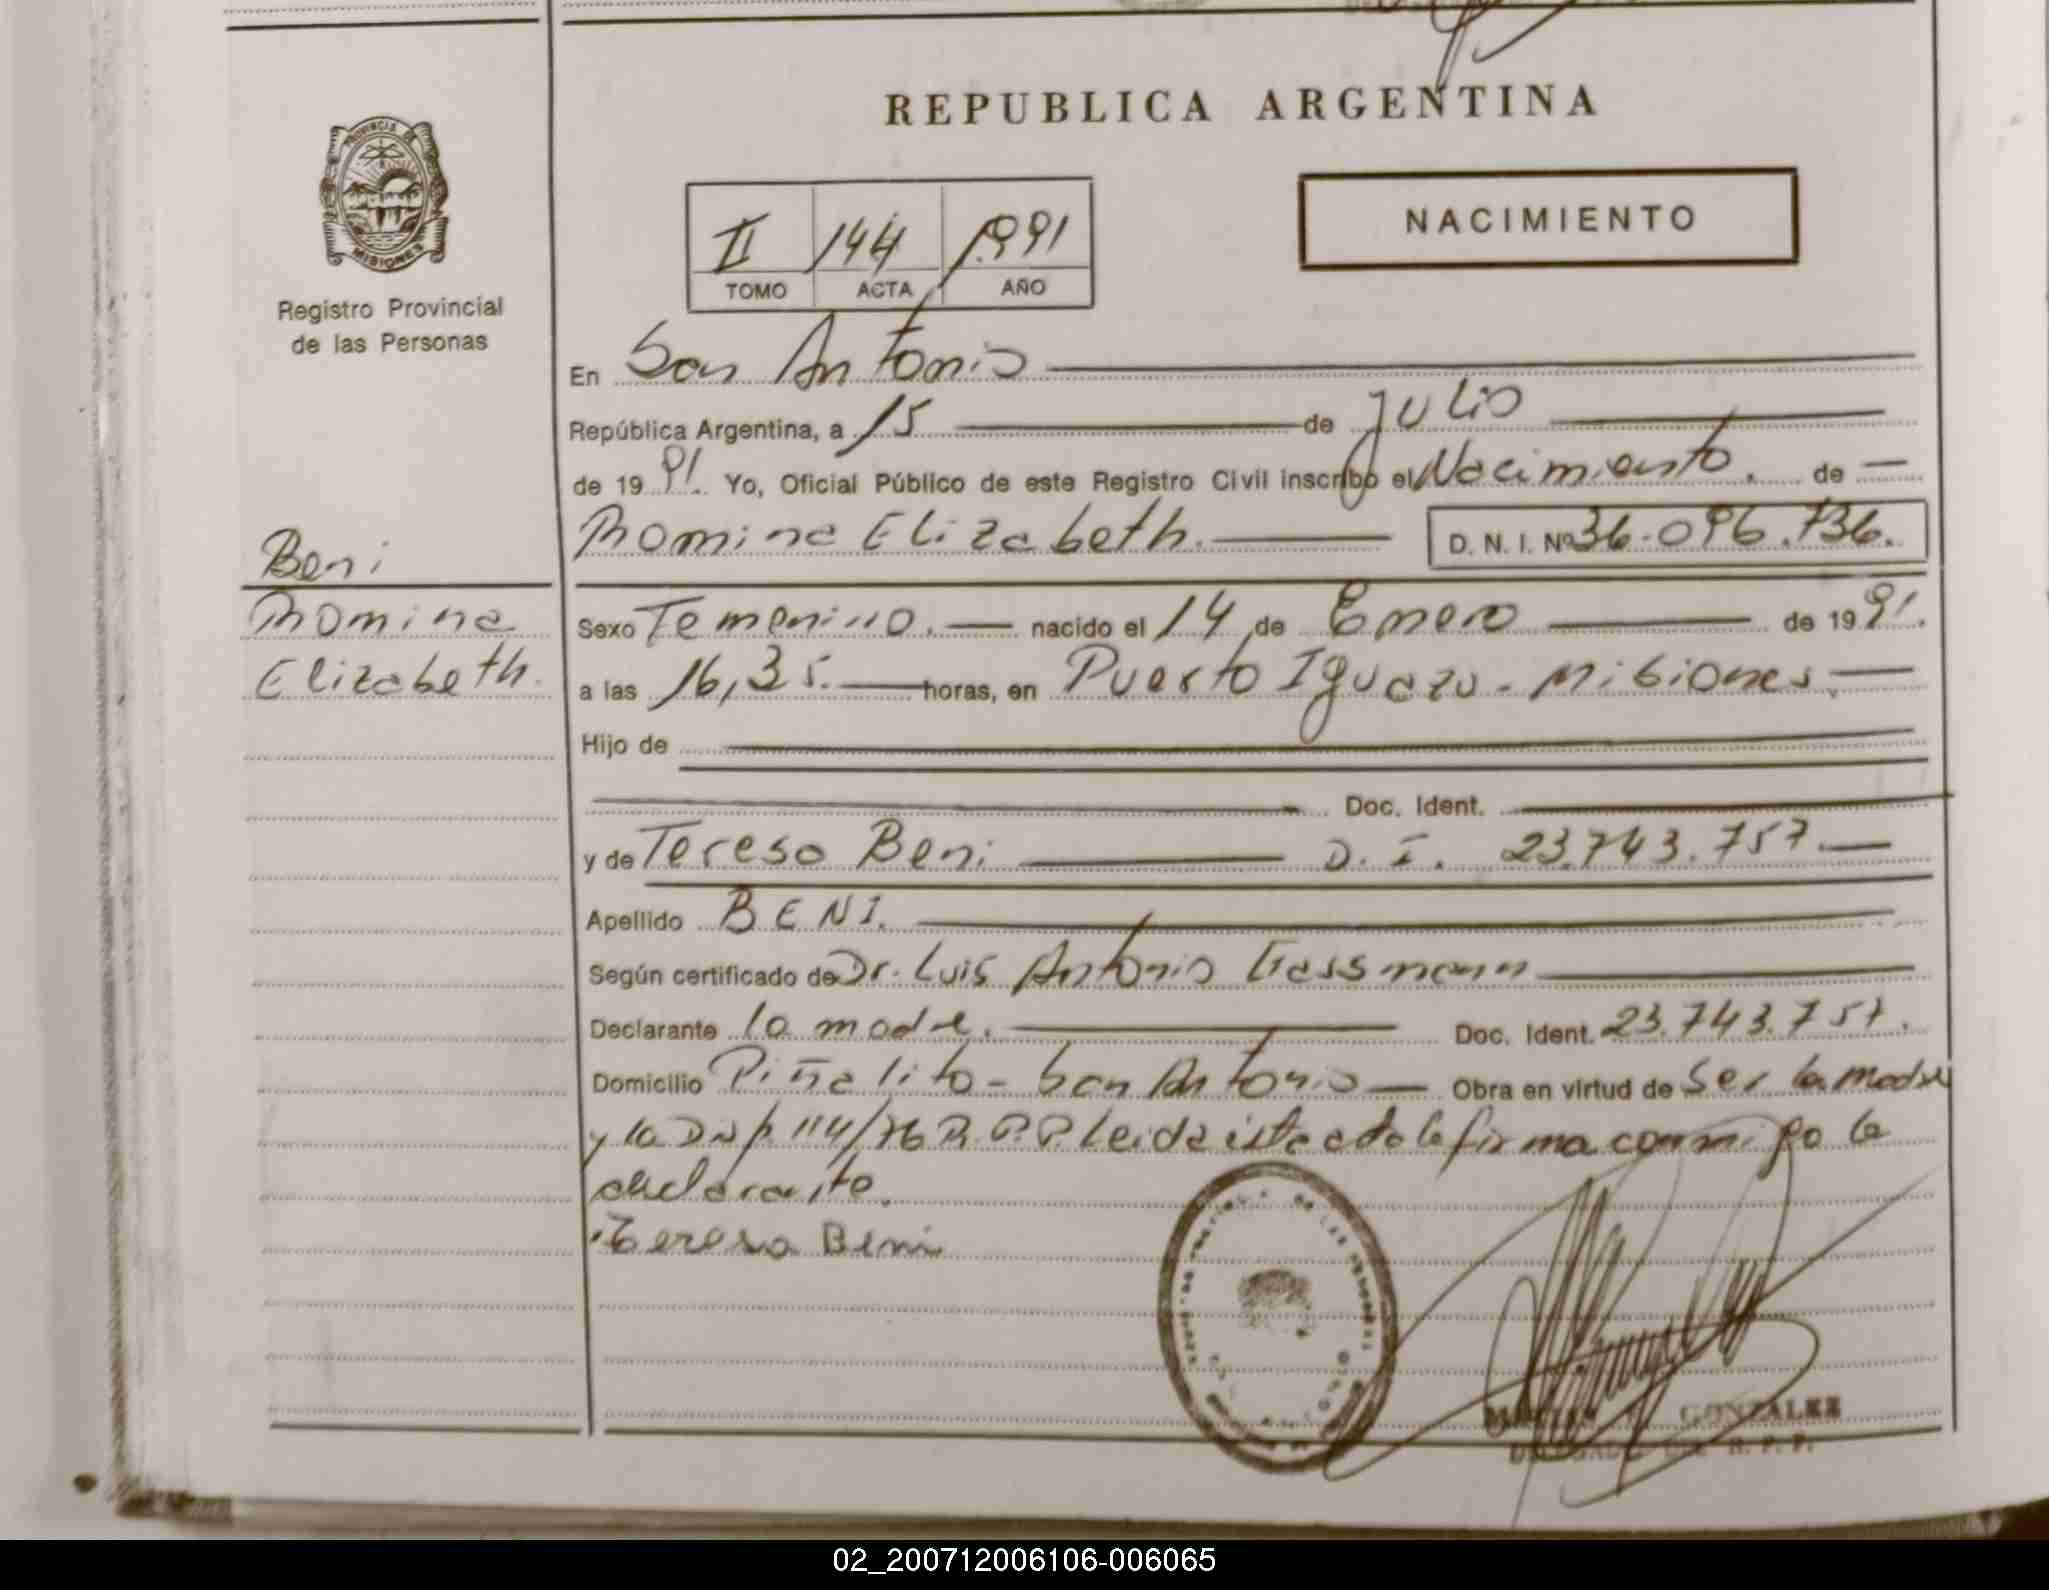 REPUBLICA ARGENTINA
PROVINCIA DE
MISIONES
Registro Provincial
de las Personas
II 144 1991
TOMO ACTA AÑO
NACIMIENTO
En San Antonio
República Argentina, a 15 de Julio
de 1991. Yo, Oficial Público de este Registro Civil inscribo el Nacimiento. de
Romina Elizabeth. D. N. I. Nº 36.096.736.
Beni
Romina
Elizabeth.
Sexo Femenino. nacido el 14 de Enero de 1991.
a las 16,35. horas, en Puerto Iguazu - Misiones.
Hijo de
Doc. Ident.
y de Teresa Beni D. I. 23.743.757.
Apellido BENI.
Según certificado de Dr. Luis Antonio
Declarante la madre. Doc. Ident. 23.743.757.
Domicilio Piñalito - San Antonio Obra en virtud de Ser la madre
y la 114/76 R.P.P. Leida este acta la firma conmigo la
declarante.
Teresa Beni
GONZALEZ
R. P. P.
02_200712006106-006065